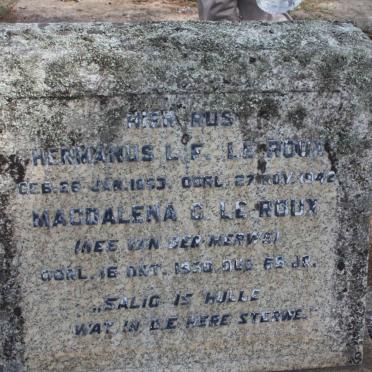 HIER RUS
HERMANUS L. F. LE ROUX
GEB. 26 JAN. OORL. 27 NOV. 1942
MAGDALENA C. LE ROUX
(NEE VAN DER MERWE)
OORL. 16 OKT. OUD 65 JR.
„SALIG IS HULLE
WAT IN DIE HERE STERWE.”